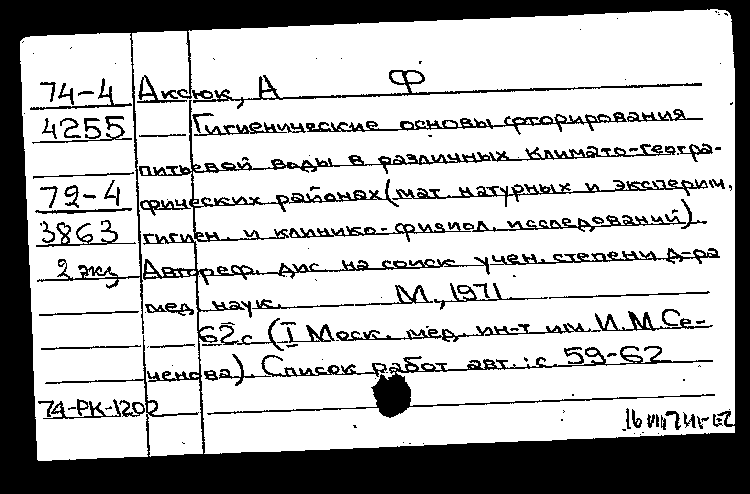 74-4 Аксюк, А Ф
4255 Гигиенические основы фторирования
питьевой воды в различных климато-геогра-
72-4 фических районах (мат. натурных и эксперим.
3863 гигиен. и клинико-физиол. исследований).
2 экз Автореф. дис на соиск учен. степени д-ра
мед. наук. М., 1971.
62с (I Моск. мед. ин-т им. И. М. Се-
ченова). Список работ авт.: с. 59-62
74-РК-1202